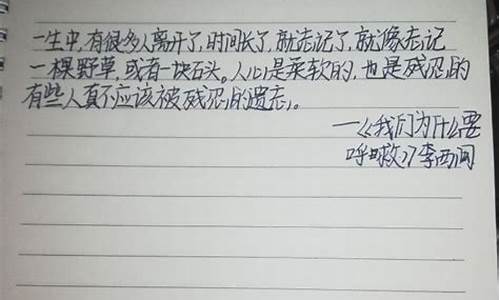 一生中，有很多人离开了，时间长了，就忘记了，就像忘记
一棵野草，或者一块石头。人心是柔软的，也是残忍的
有些人真不应该被残忍的遗忘。
—《我们为什么要
呼救》李西闽